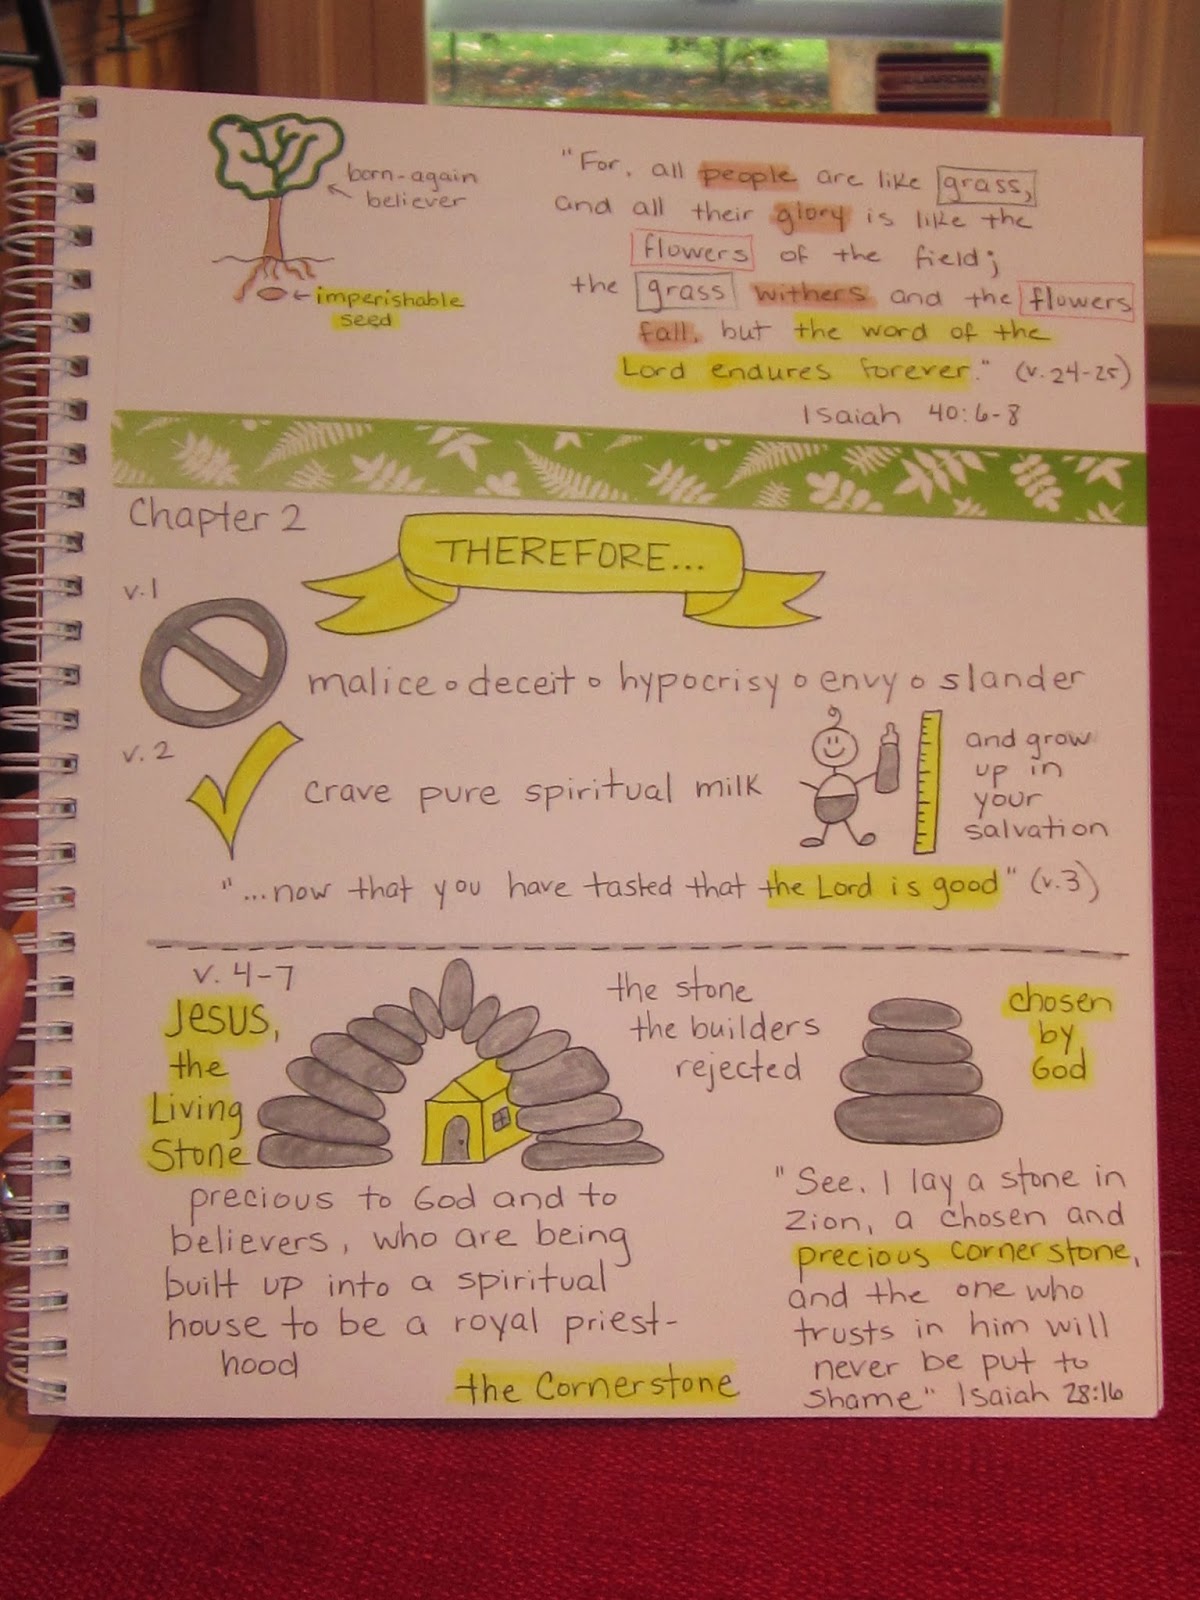 born-again
believer
imperishable
seed
"For, all people are like grass,
and all their glory is like the
flowers of the field;
the grass withers and the flowers
fall, but the word of the
Lord endures forever." (v. 24-25)
Isaiah 40:6-8
Chapter 2
THEREFORE...
v.1
malice o deceit o hypocrisy o envy o slander
v. 2
crave pure spiritual milk
and grow
up in
your
salvation
"...now that you have tasted that the Lord is good" (v.3)
v. 4-7
Jesus,
the
Living
Stone
precious to God and to
believers, who are being
built up into a spiritual
house to be a royal priest-
hood
the stone
the builders
rejected
chosen
by
God
"See, I lay a stone in
Zion, a chosen and
precious cornerstone,
and the one who
trusts in him will
never be put to
shame" Isaiah 28:16
the Cornerstone